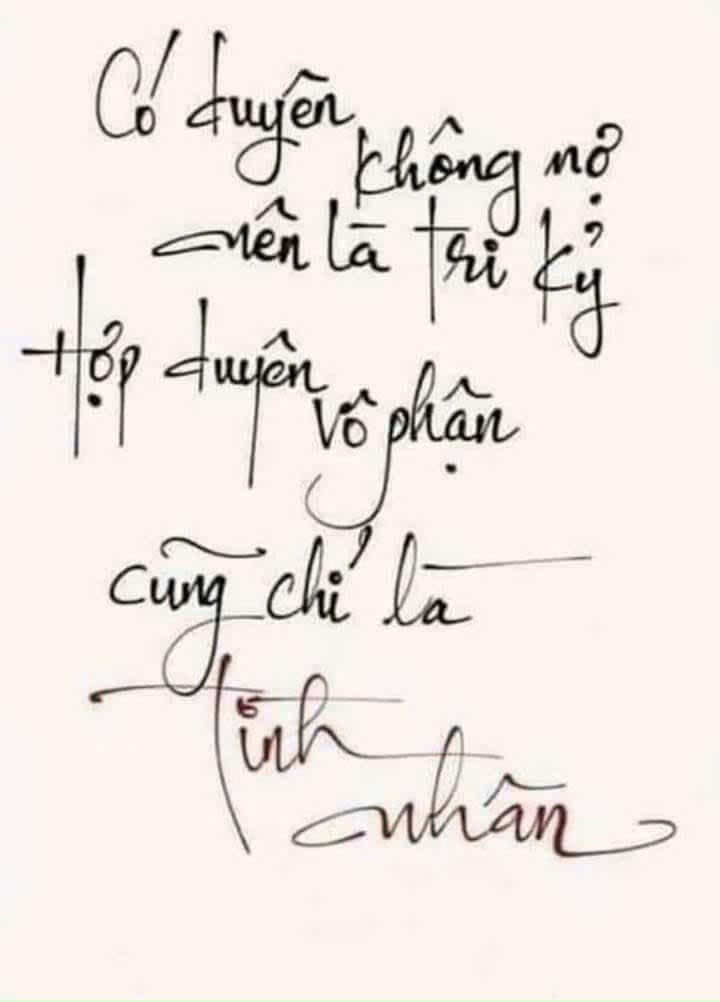 Có duyên
không nợ
nên là tri kỷ
Hợp duyên
vô phận
cũng chỉ là
tình
nhân